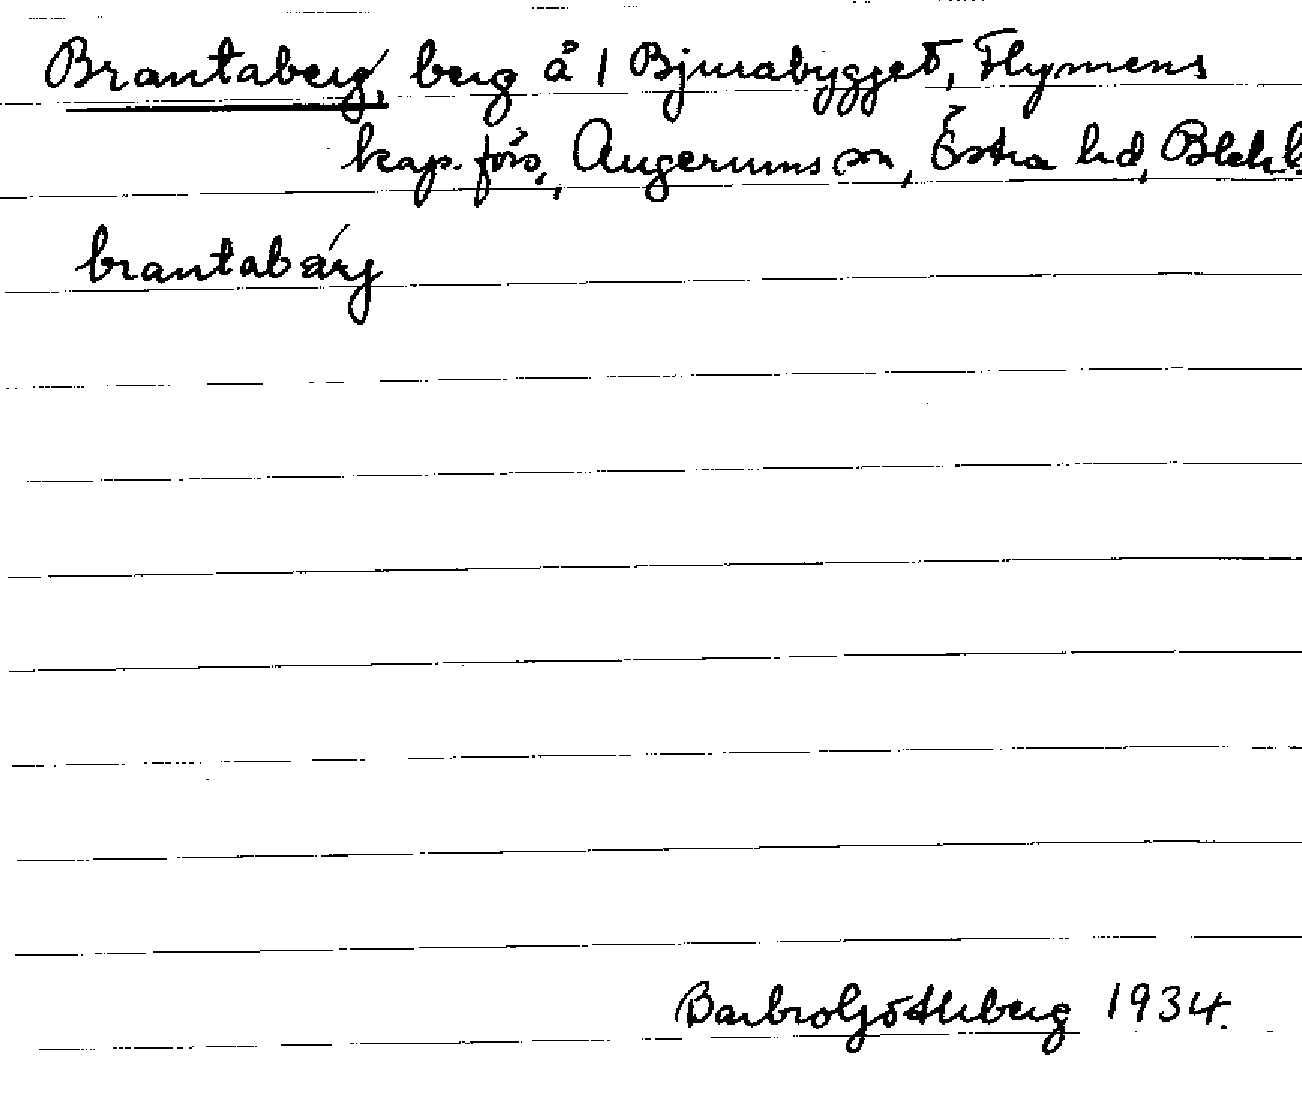 Brantaberg, berg å 1 Bjurabygget, Flymens
kap. förs., Augerums sn, Östra hd, Blek.
brantabärj
Barbro Götheberg 1934.